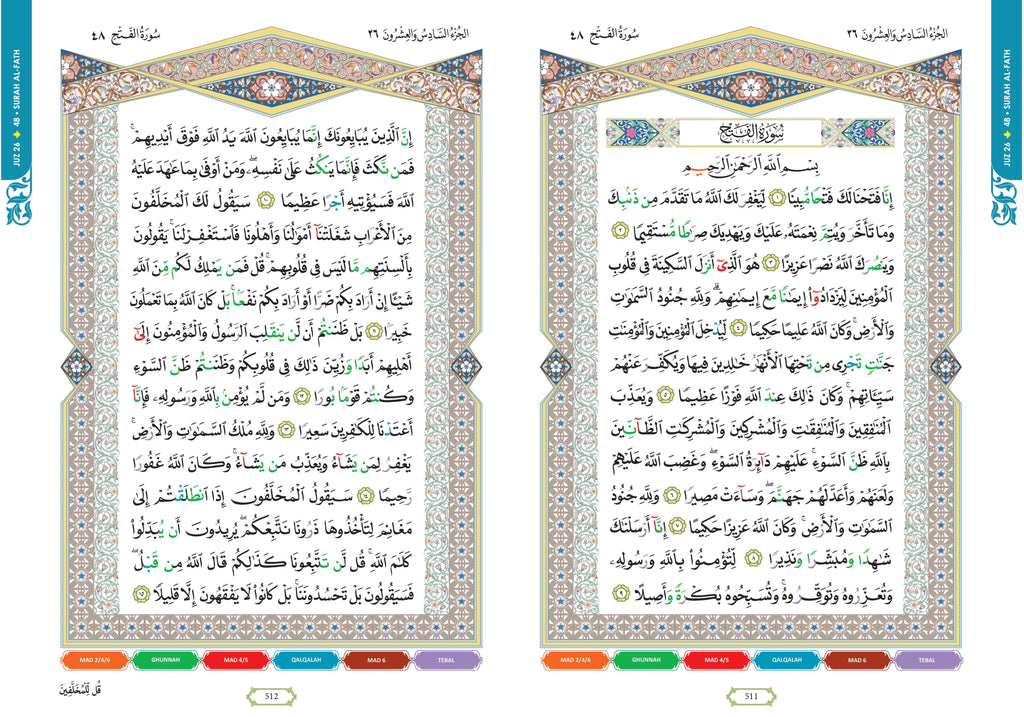 JUZ 26 ✦ 48 • SURAH AL-FATH
الجُزْءُ السَّادِسُ وَالعِشْرُونَ ٢٦
سُورَةُ الفَتْحِ ٤٨
سُورَةُ الفَتْحِ
بِسْمِ اللَّهِ الرَّحْمَٰنِ الرَّحِيمِ
إِنَّا فَتَحْنَا لَكَ فَتْحًا مُّبِينًا ١ لِّيَغْفِرَ لَكَ اللَّهُ مَا تَقَدَّمَ مِن ذَنۢبِكَ
وَمَا تَأَخَّرَ وَيُتِمَّ نِعْمَتَهُۥ عَلَيْكَ وَيَهْدِيَكَ صِرَٰطًا مُّسْتَقِيمًا ٢
وَيَنصُرَكَ اللَّهُ نَصْرًا عَزِيزًا ٣ هُوَ الَّذِىٓ أَنزَلَ السَّكِينَةَ فِى قُلُوبِ
الْمُؤْمِنِينَ لِيَزْدَادُوٓا۟ إِيمَٰنًا مَّعَ إِيمَٰنِهِمْ ۗ وَلِلَّهِ جُنُودُ السَّمَٰوَٰتِ
وَالْأَرْضِ ۚ وَكَانَ اللَّهُ عَلِيمًا حَكِيمًا ٤ لِّيُدْخِلَ الْمُؤْمِنِينَ وَالْمُؤْمِنَٰتِ
جَنَّٰتٍ تَجْرِى مِن تَحْتِهَا الْأَنْهَٰرُ خَٰلِدِينَ فِيهَا وَيُكَفِّرَ عَنْهُمْ
سَيِّـَٔاتِهِمْ ۚ وَكَانَ ذَٰلِكَ عِندَ اللَّهِ فَوْزًا عَظِيمًا ٥ وَيُعَذِّبَ
الْمُنَٰفِقِينَ وَالْمُنَٰفِقَٰتِ وَالْمُشْرِكِينَ وَالْمُشْرِكَٰتِ الظَّآنِّينَ
بِاللَّهِ ظَنَّ السَّوْءِ ۚ عَلَيْهِمْ دَآئِرَةُ السَّوْءِ ۖ وَغَضِبَ اللَّهُ عَلَيْهِمْ
وَلَعَنَهُمْ وَأَعَدَّ لَهُمْ جَهَنَّمَ ۖ وَسَآءَتْ مَصِيرًا ٦ وَلِلَّهِ جُنُودُ
السَّمَٰوَٰتِ وَالْأَرْضِ ۚ وَكَانَ اللَّهُ عَزِيزًا حَكِيمًا ٧ إِنَّآ أَرْسَلْنَٰكَ
شَٰهِدًا وَمُبَشِّرًا وَنَذِيرًا ٨ لِّتُؤْمِنُوا۟ بِاللَّهِ وَرَسُولِهِۦ
وَتُعَزِّرُوهُ وَتُوَقِّرُوهُ ۚ وَتُسَبِّحُوهُ بُكْرَةً وَأَصِيلًا ٩
MAD 2/4/6 GHUNNAH MAD 4/5 QALQALAH MAD 6 TEBAL
511
JUZ 26 ✦ 48 • SURAH AL-FATH
الجُزْءُ السَّادِسُ وَالعِشْرُونَ ٢٦
سُورَةُ الفَتْحِ ٤٨
إِنَّ الَّذِينَ يُبَايِعُونَكَ إِنَّمَا يُبَايِعُونَ اللَّهَ يَدُ اللَّهِ فَوْقَ أَيْدِيهِمْ ۚ
فَمَن نَّكَثَ فَإِنَّمَا يَنكُثُ عَلَىٰ نَفْسِهِۦ ۖ وَمَنْ أَوْفَىٰ بِمَا عَٰهَدَ عَلَيْهُ
اللَّهَ فَسَيُؤْتِيهِ أَجْرًا عَظِيمًا ١٠ سَيَقُولُ لَكَ الْمُخَلَّفُونَ
مِنَ الْأَعْرَابِ شَغَلَتْنَآ أَمْوَٰلُنَا وَأَهْلُونَا فَاسْتَغْفِرْ لَنَا ۚ يَقُولُونَ
بِأَلْسِنَتِهِم مَّا لَيْسَ فِى قُلُوبِهِمْ ۚ قُلْ فَمَن يَمْلِكُ لَكُم مِّنَ اللَّهِ
شَيْـًٔا إِنْ أَرَادَ بِكُمْ ضَرًّا أَوْ أَرَادَ بِكُمْ نَفْعًۢا ۚ بَلْ كَانَ اللَّهُ بِمَا تَعْمَلُونَ
خَبِيرًۢا ١١ بَلْ ظَنَنتُمْ أَن لَّن يَنقَلِبَ الرَّسُولُ وَالْمُؤْمِنُونَ إِلَىٰٓ
أَهْلِيهِمْ أَبَدًا وَزُيِّنَ ذَٰلِكَ فِى قُلُوبِكُمْ وَظَنَنتُمْ ظَنَّ السَّوْءِ
وَكُنتُمْ قَوْمًۢا بُورًا ١٢ وَمَن لَّمْ يُؤْمِنۢ بِاللَّهِ وَرَسُولِهِۦ فَإِنَّآ
أَعْتَدْنَا لِلْكَٰفِرِينَ سَعِيرًا ١٣ وَلِلَّهِ مُلْكُ السَّمَٰوَٰتِ وَالْأَرْضِ ۚ
يَغْفِرُ لِمَن يَشَآءُ وَيُعَذِّبُ مَن يَشَآءُ ۚ وَكَانَ اللَّهُ غَفُورًا
رَّحِيمًا ١٤ سَيَقُولُ الْمُخَلَّفُونَ إِذَا انطَلَقْتُمْ إِلَىٰ
مَغَانِمَ لِتَأْخُذُوهَا ذَرُونَا نَتَّبِعْكُمْ ۖ يُرِيدُونَ أَن يُبَدِّلُوا۟
كَلَٰمَ اللَّهِ ۚ قُل لَّن تَتَّبِعُونَا كَذَٰلِكُمْ قَالَ اللَّهُ مِن قَبْلُ ۖ
فَسَيَقُولُونَ بَلْ تَحْسُدُونَنَا ۚ بَلْ كَانُوا۟ لَا يَفْقَهُونَ إِلَّا قَلِيلًا ١٥
MAD 2/4/6 GHUNNAH MAD 4/5 QALQALAH MAD 6 TEBAL
قُل لِّلْمُخَلَّفِينَ
512